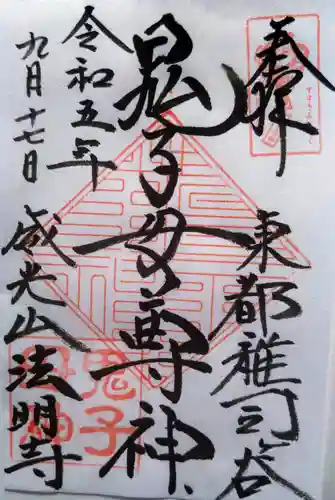 奉拝
東都雑司ヶ谷
鬼子母尊神
令和五年
九月十七日
威光山法明寺
鬼子母神